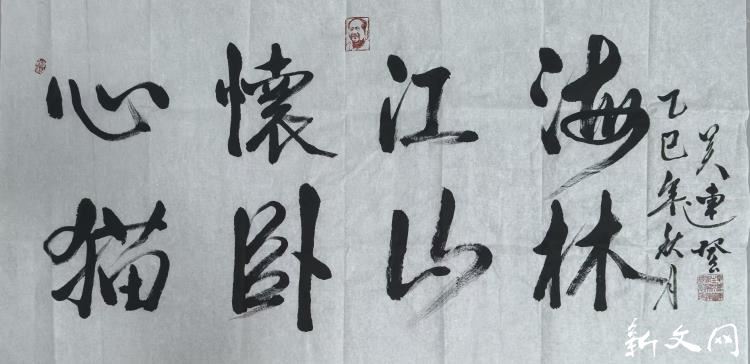 心懷江海
猫卧山林
乙巳年秋月
吴連登
新文网